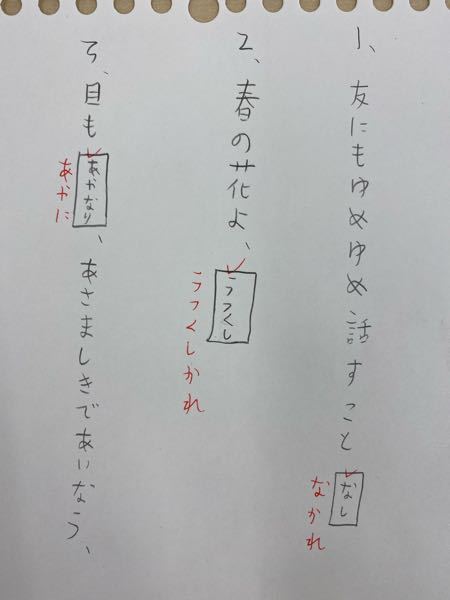 1、友にもゆめゆめ話すことなし
なかれ
2、春の花よ、うつくし
うつくしかれ
3、目もあかなり、あさましきであいなう、
あかに